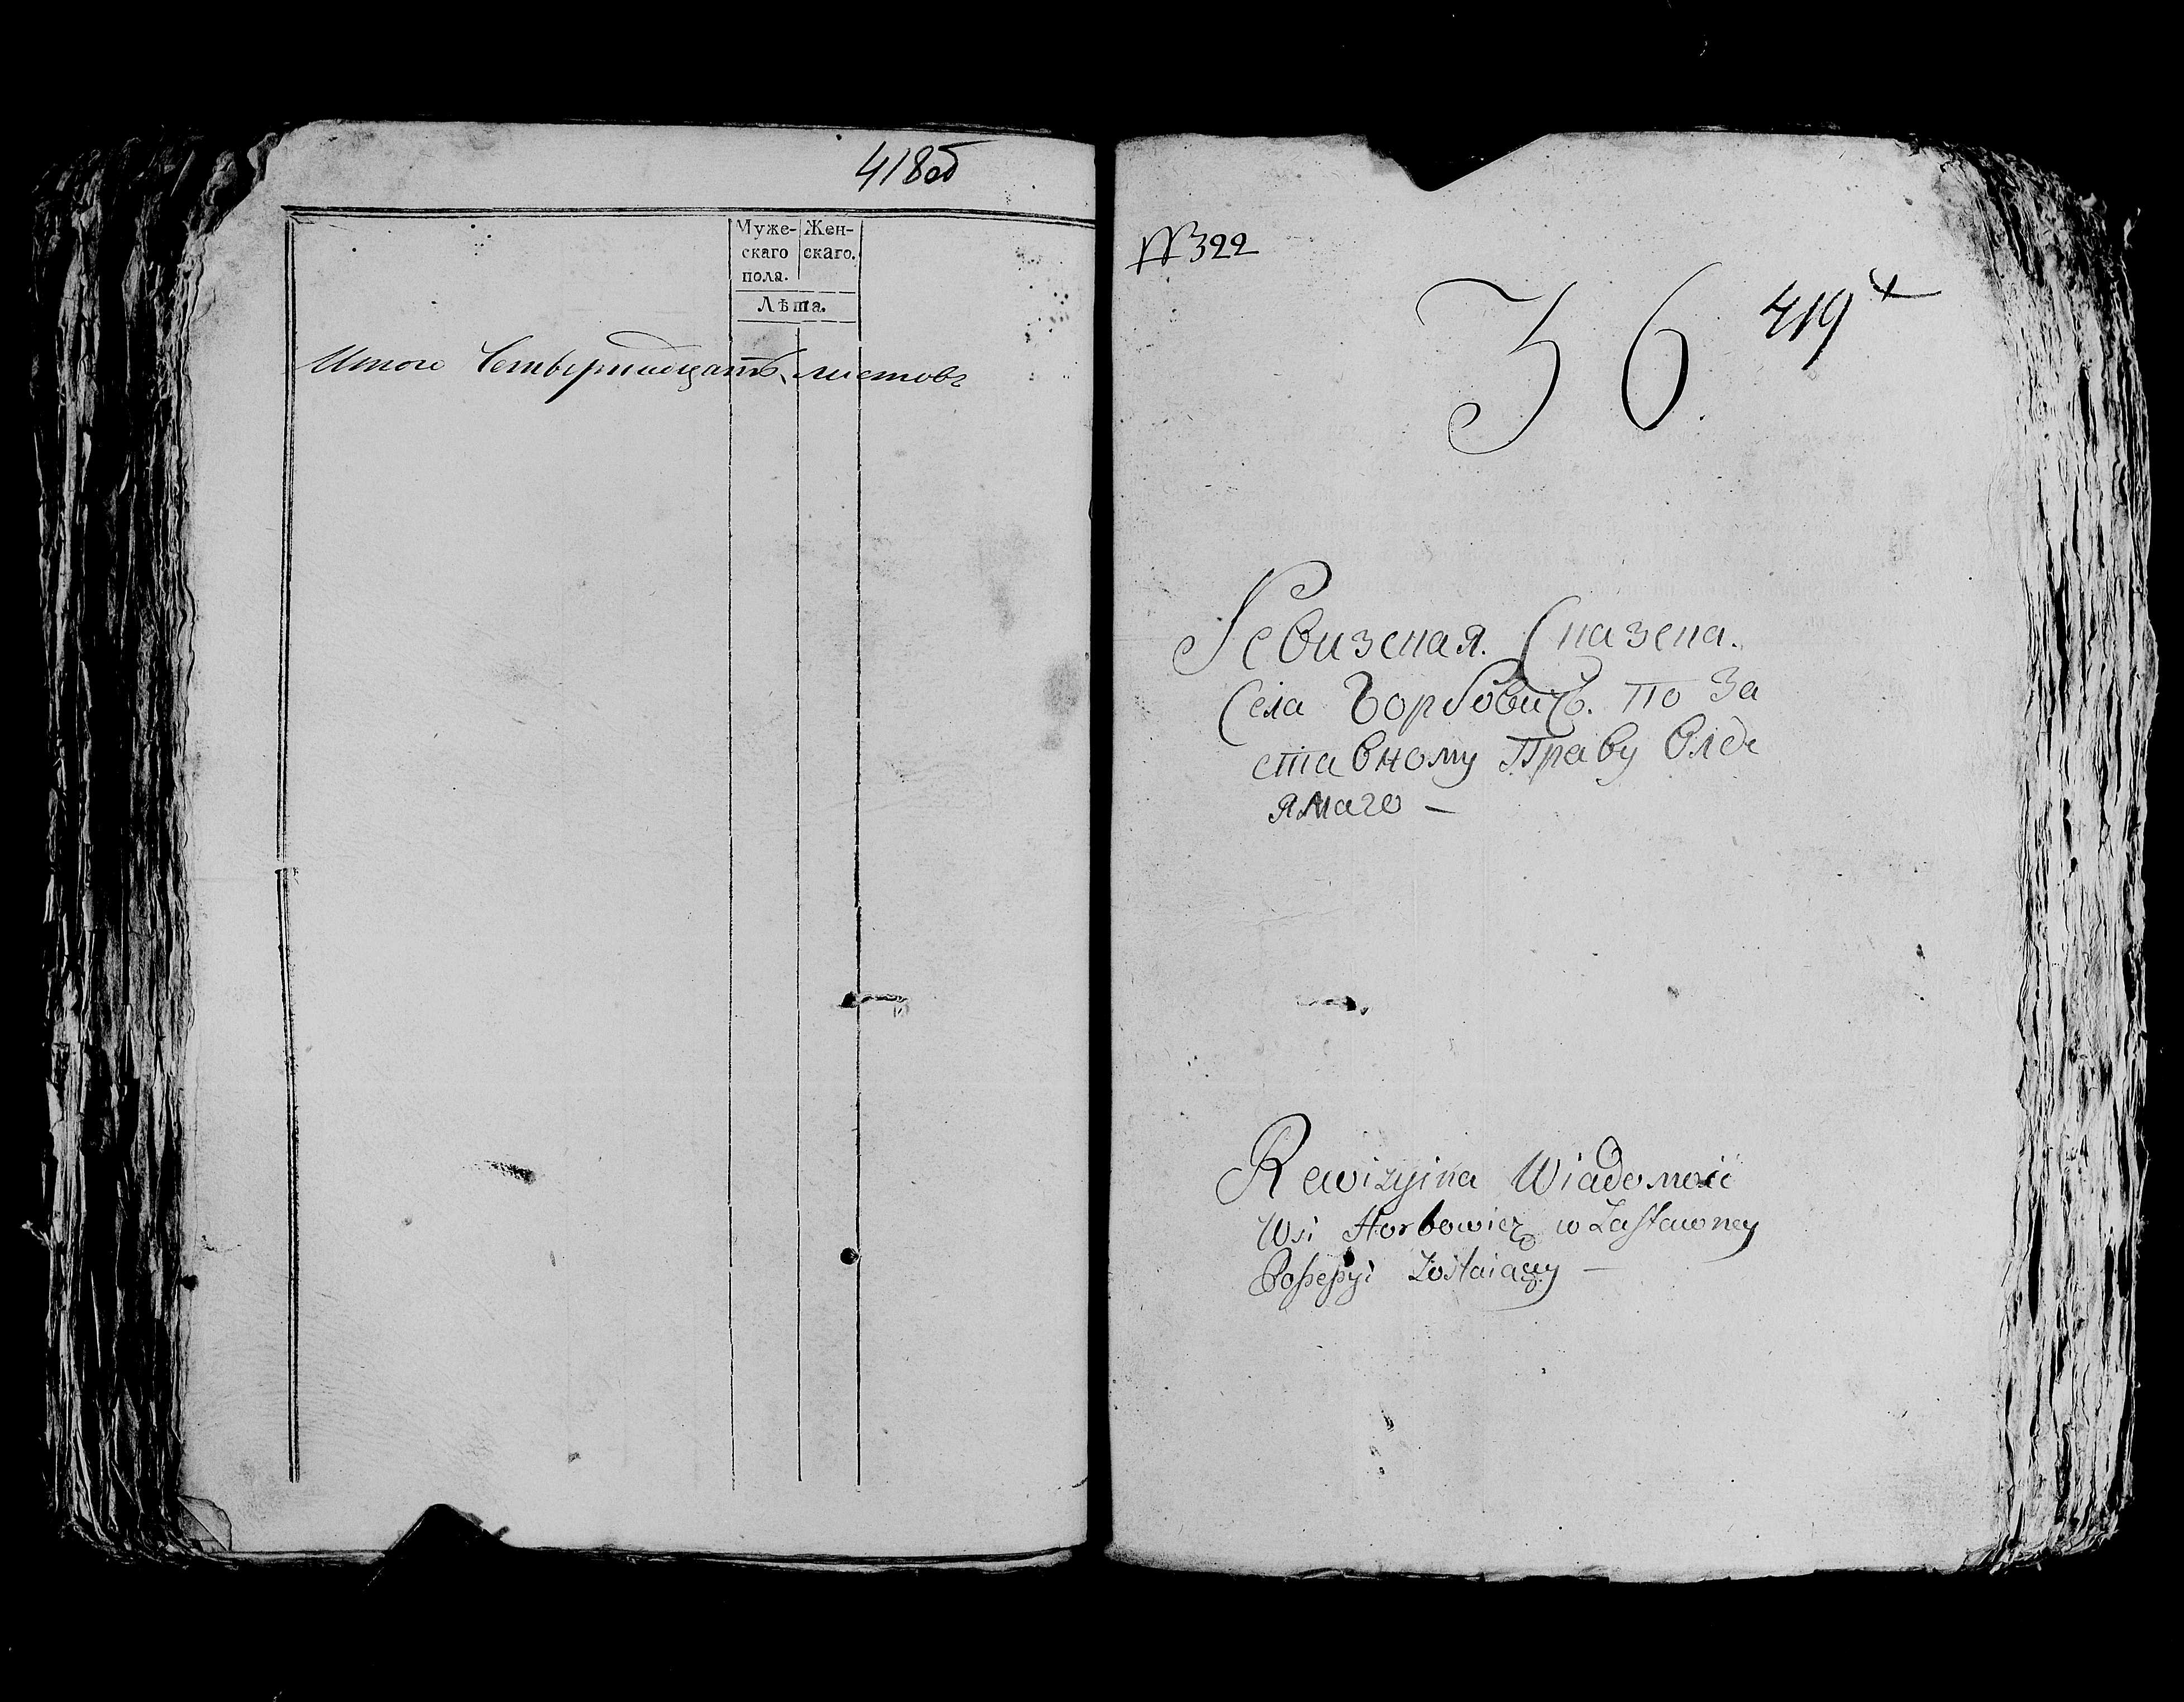 418об
Муже- Жен-
скаго скаго.
пола.
Лѣта.
Итого Четырнадцать листовъ
№322
36 419
Ревизская Сказска
Села Горбовицъ. По За
ставному Праву Владе
ямаго —
Rewizyina Wiadomość
Wsi Horbowicz w Zastawney
Possessyi Zostaiący —